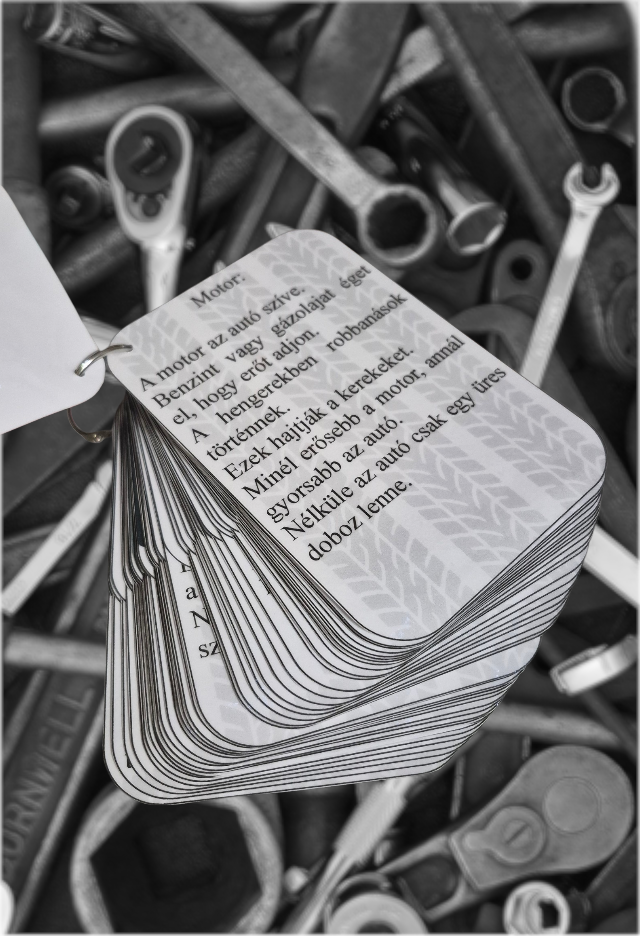 Motor:
A motor az autó szíve.
Benzint vagy gázolajat éget
el, hogy erőt adjon.
A hengerekben robbanások
történnek.
Ezek hajtják a kerekeket.
Minél erősebb a motor, annál
gyorsabb az autó.
Nélküle az autó csak egy üres
doboz lenne.